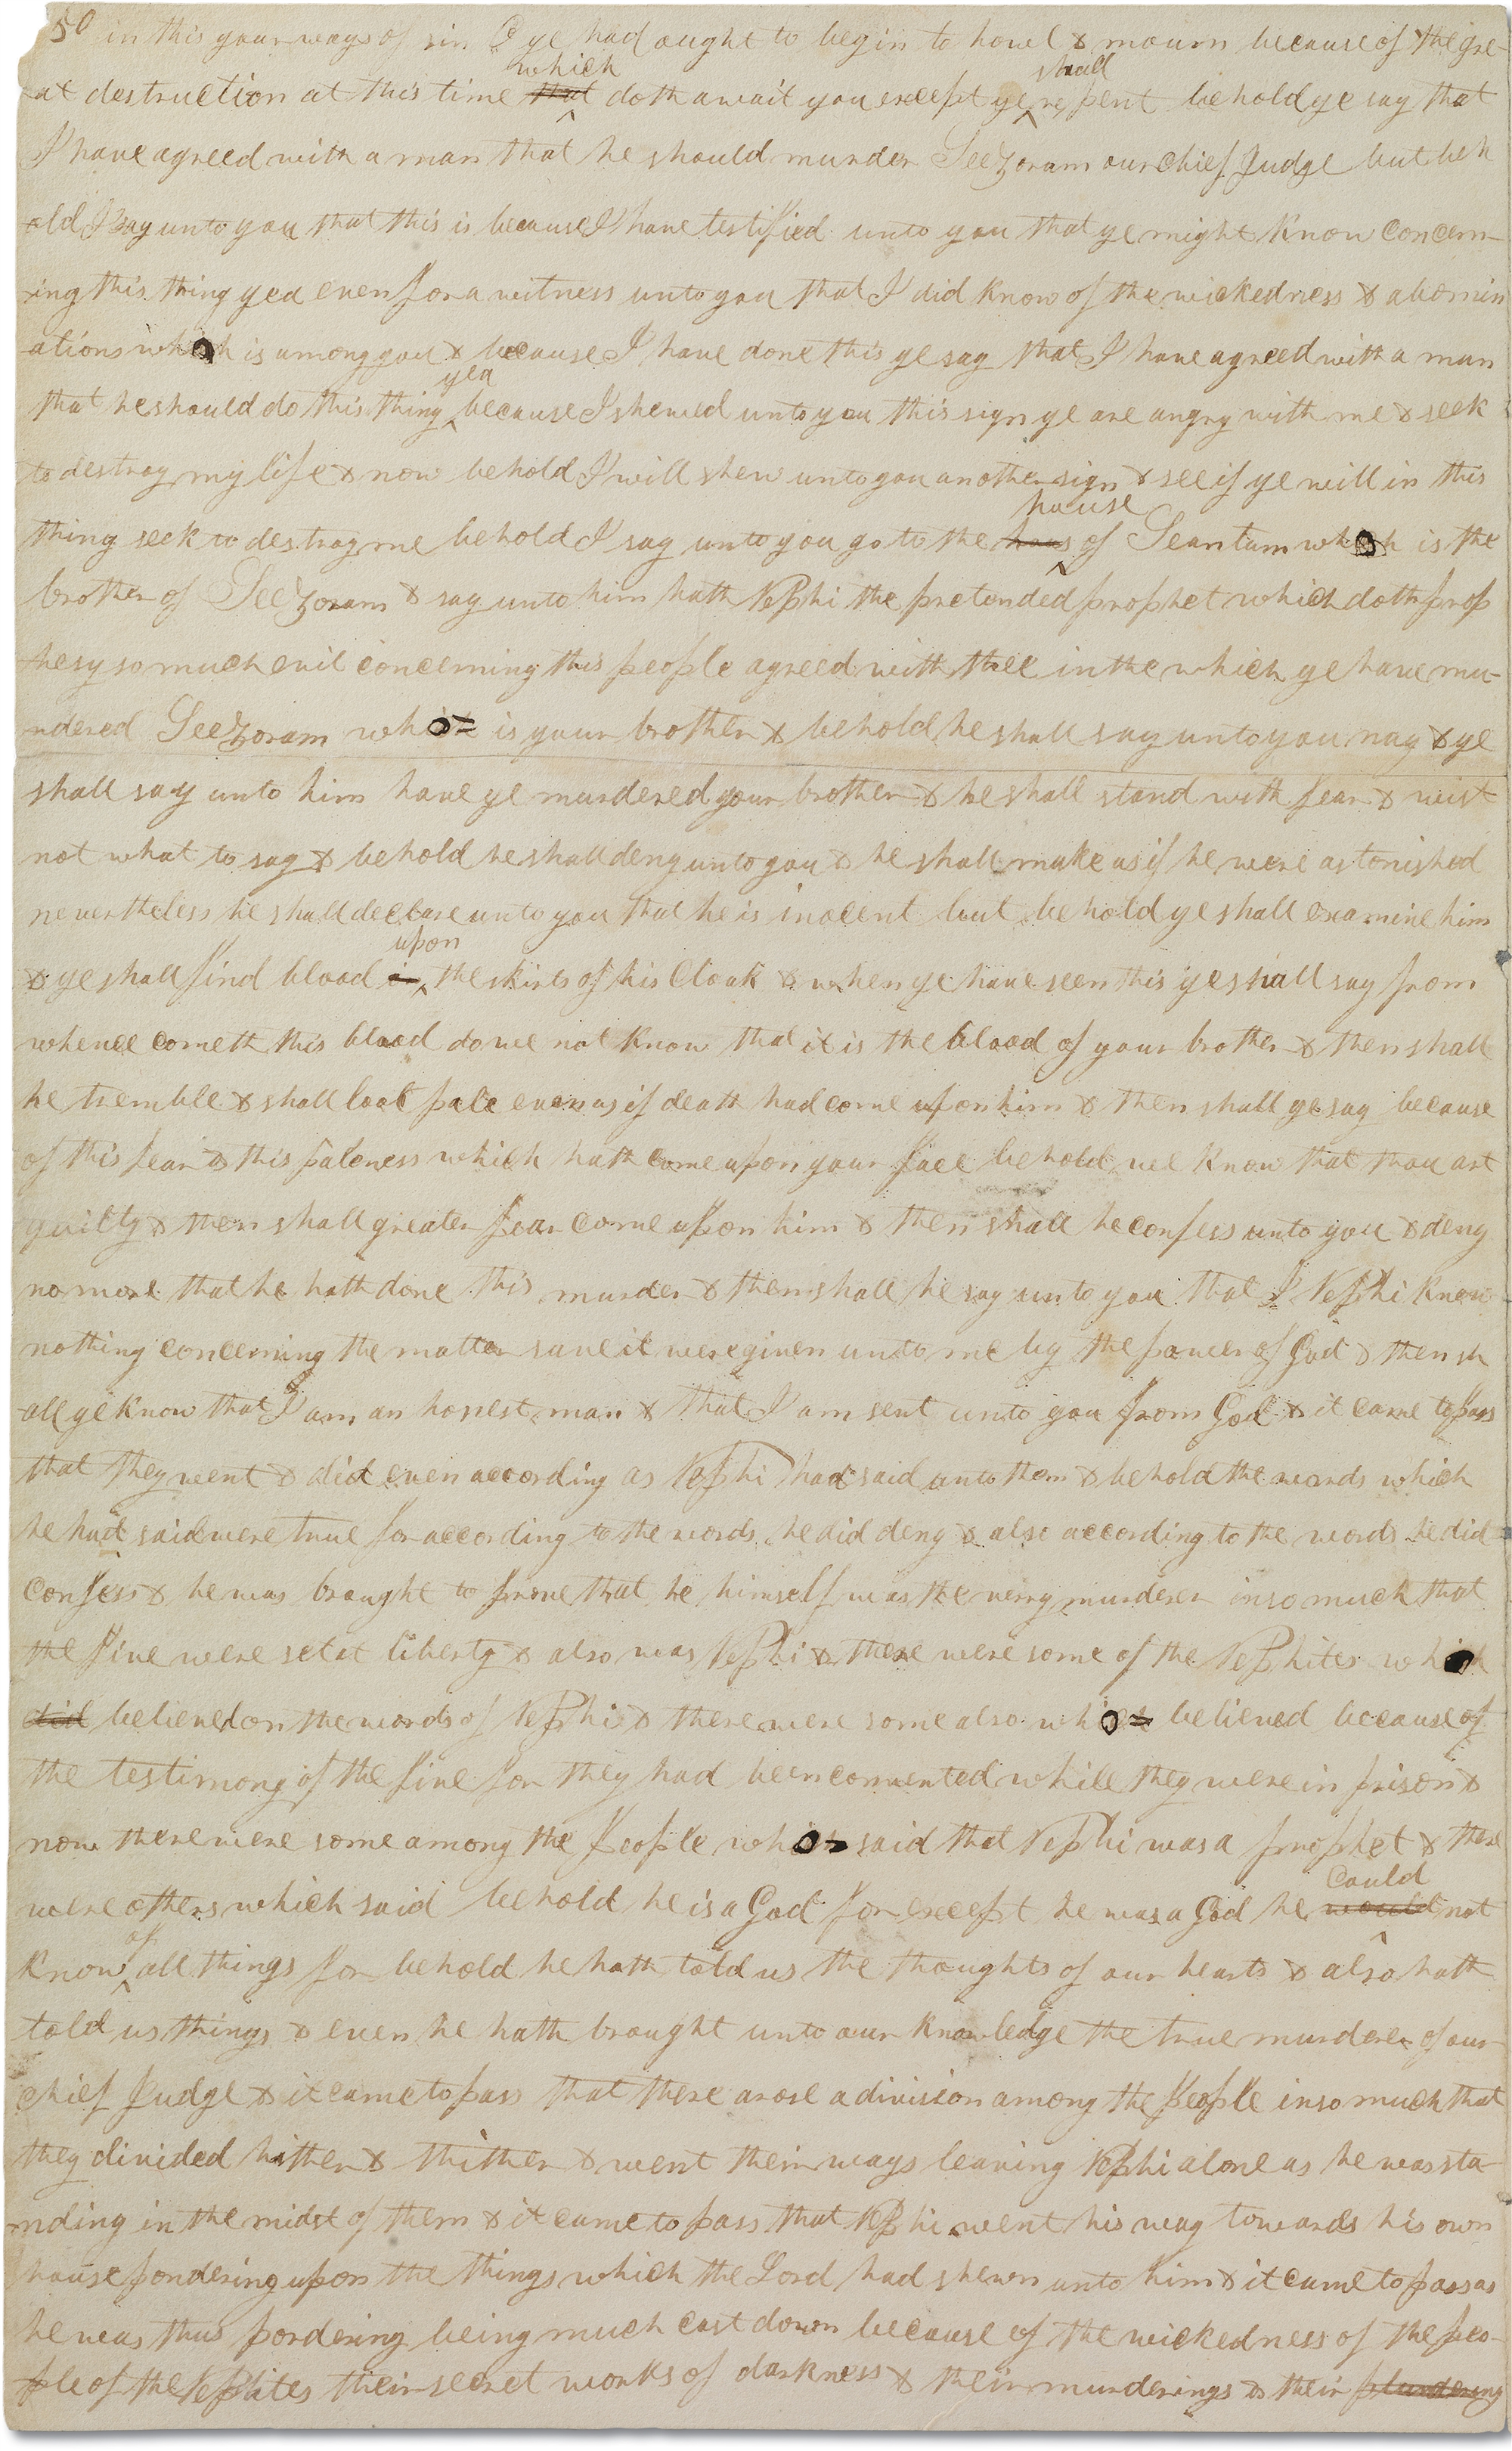 50 in this your ways of sin O ye had ought to begin to howl & mourn because of the gre-
which shall
at destruction at this time that doth await you except ye repent behold ye say that
I have agreed with a man that he should murder Seezoram our chief Judge but beh
old I say unto you that this is because I have testified unto you that ye might know concern-
ing this thing yea even for a witness unto you that I did know of the wickedness & abomin
ations which is among you & because I have done this ye say that I have agreed with a man
yea
that he should do this thing because I shewed unto you this sign ye are angry with me & seek
to destroy my life & now behold I will shew unto you another sign & see if ye will in this
house
thing seek to destroy me behold I say unto you go to the hous of Seantum which is the
brother of Seezoram & say unto him hath Nephi the pretended prophet which doth prop
hesy so much evil concerning this people agreed with thee in the which ye have mu-
rdered Seezoram who is your brother & behold he shall say unto you nay & ye
shall say unto him have ye murdered your brother & he shall stand with fear & wist
not what to say & behold he shall deny unto you & he shall make as if he were astonished
nevertheless he shall declare unto you that he is inocent but behold ye shall examine him
upon
& ye shall find blood in the skirts of his Cloak & when ye have seen this ye shall say from
whence cometh this blood do we not know that it is the blood of your brother & then shall
he tremble & shall look pale even as if death had come upon him & then shall ye say because
of this fear & this paleness which hath come upon your face behold we know that thou art
guilty & then shall greater fear come upon him & then shall he confess unto you & deny
no more that he hath done this murder & then shall he say unto you that I Nephi know
nothing concerning the matter save it were given unto me by the power of God & then sh
all ye know that I am an honest man & that I am sent unto you from God & it came to pass
that they went & did even according as Nephi had said unto them & behold the words which
he had said were true for according to the words he did deny & also according to the words he did
confess & he was brought to prove that he himself was the very murderer insomuch that
the five were set at liberty & also was Nephi & there were some of the Nephites which
did believed on the words of Nephi & there were some also who believed because of
the testimony of the five for they had been convented while they were in prison &
now there were some among the People who said that Nephi was a prophet & there
could
were others which said behold he is a God for except he was a God he would not
of
know all things for behold he hath told us the thoughts of our hearts & also hath
told us things & even he hath brought unto our knowledge the true murderer of our
chief Judge & it came to pass that there arose a division among the People insomuch that
they divided hither & thither & went their ways leaving Nephi alone as he was sta-
nding in the midst of them & it came to pass that Nephi went his way towards his own
house pondering upon the things which the Lord had shewn unto him & it came to pass as
he was thus pordering being much cast down because of the wickedness of the peo-
ple of the Nephites their secret works of darkness & their murderings & their plundering